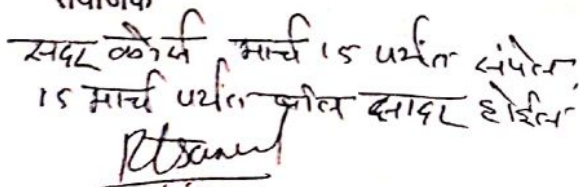 संयोजक
सदर कोर्स मार्च 15 पर्यंत संपेल,
15 मार्च पर्यंत बील सादर होईल